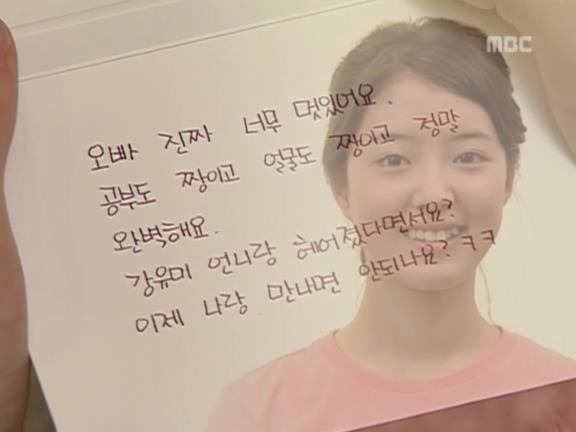 MBC
오빠 진짜 너무 멋있어요.
공부도 짱이고 얼굴도 짱이고 정말
완벽해요.
강유미 언니랑 헤어졌다면서요?
이제 나랑 만나면 안되나요? ㅋㅋ